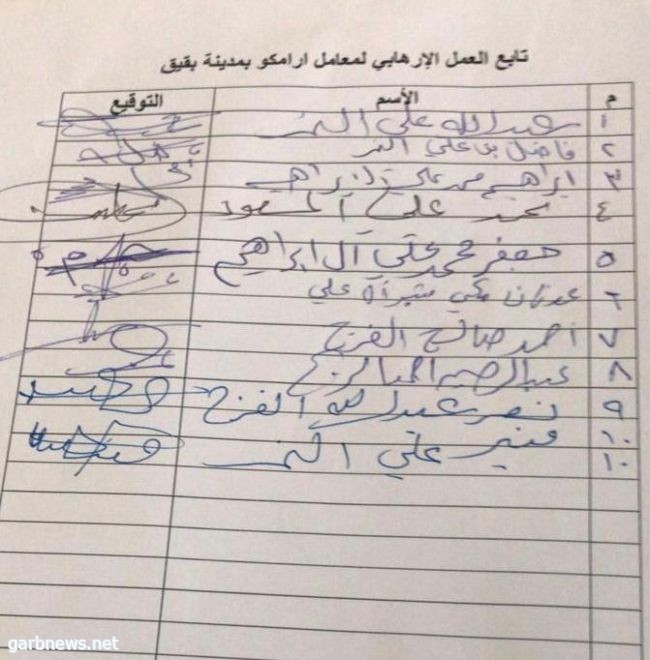 تابع العمل الإرهابي لمعامل ارامكو بمدينة بقيق
م الأسم التوقيع
١ عبدالله علي النمر
٢ فاضل بن علي النمر
٣ ابراهيم محمد علي
٤ محمد علي المسعود
٥ جعفر محمد علي ال ابراهيم
٦ عدنان مكي علي
٧ احمد صالح الفرج
٨ احمد
٩ نصر عبدالله الفرج
١٠ منير علي النمر
١٠
garbnews.net